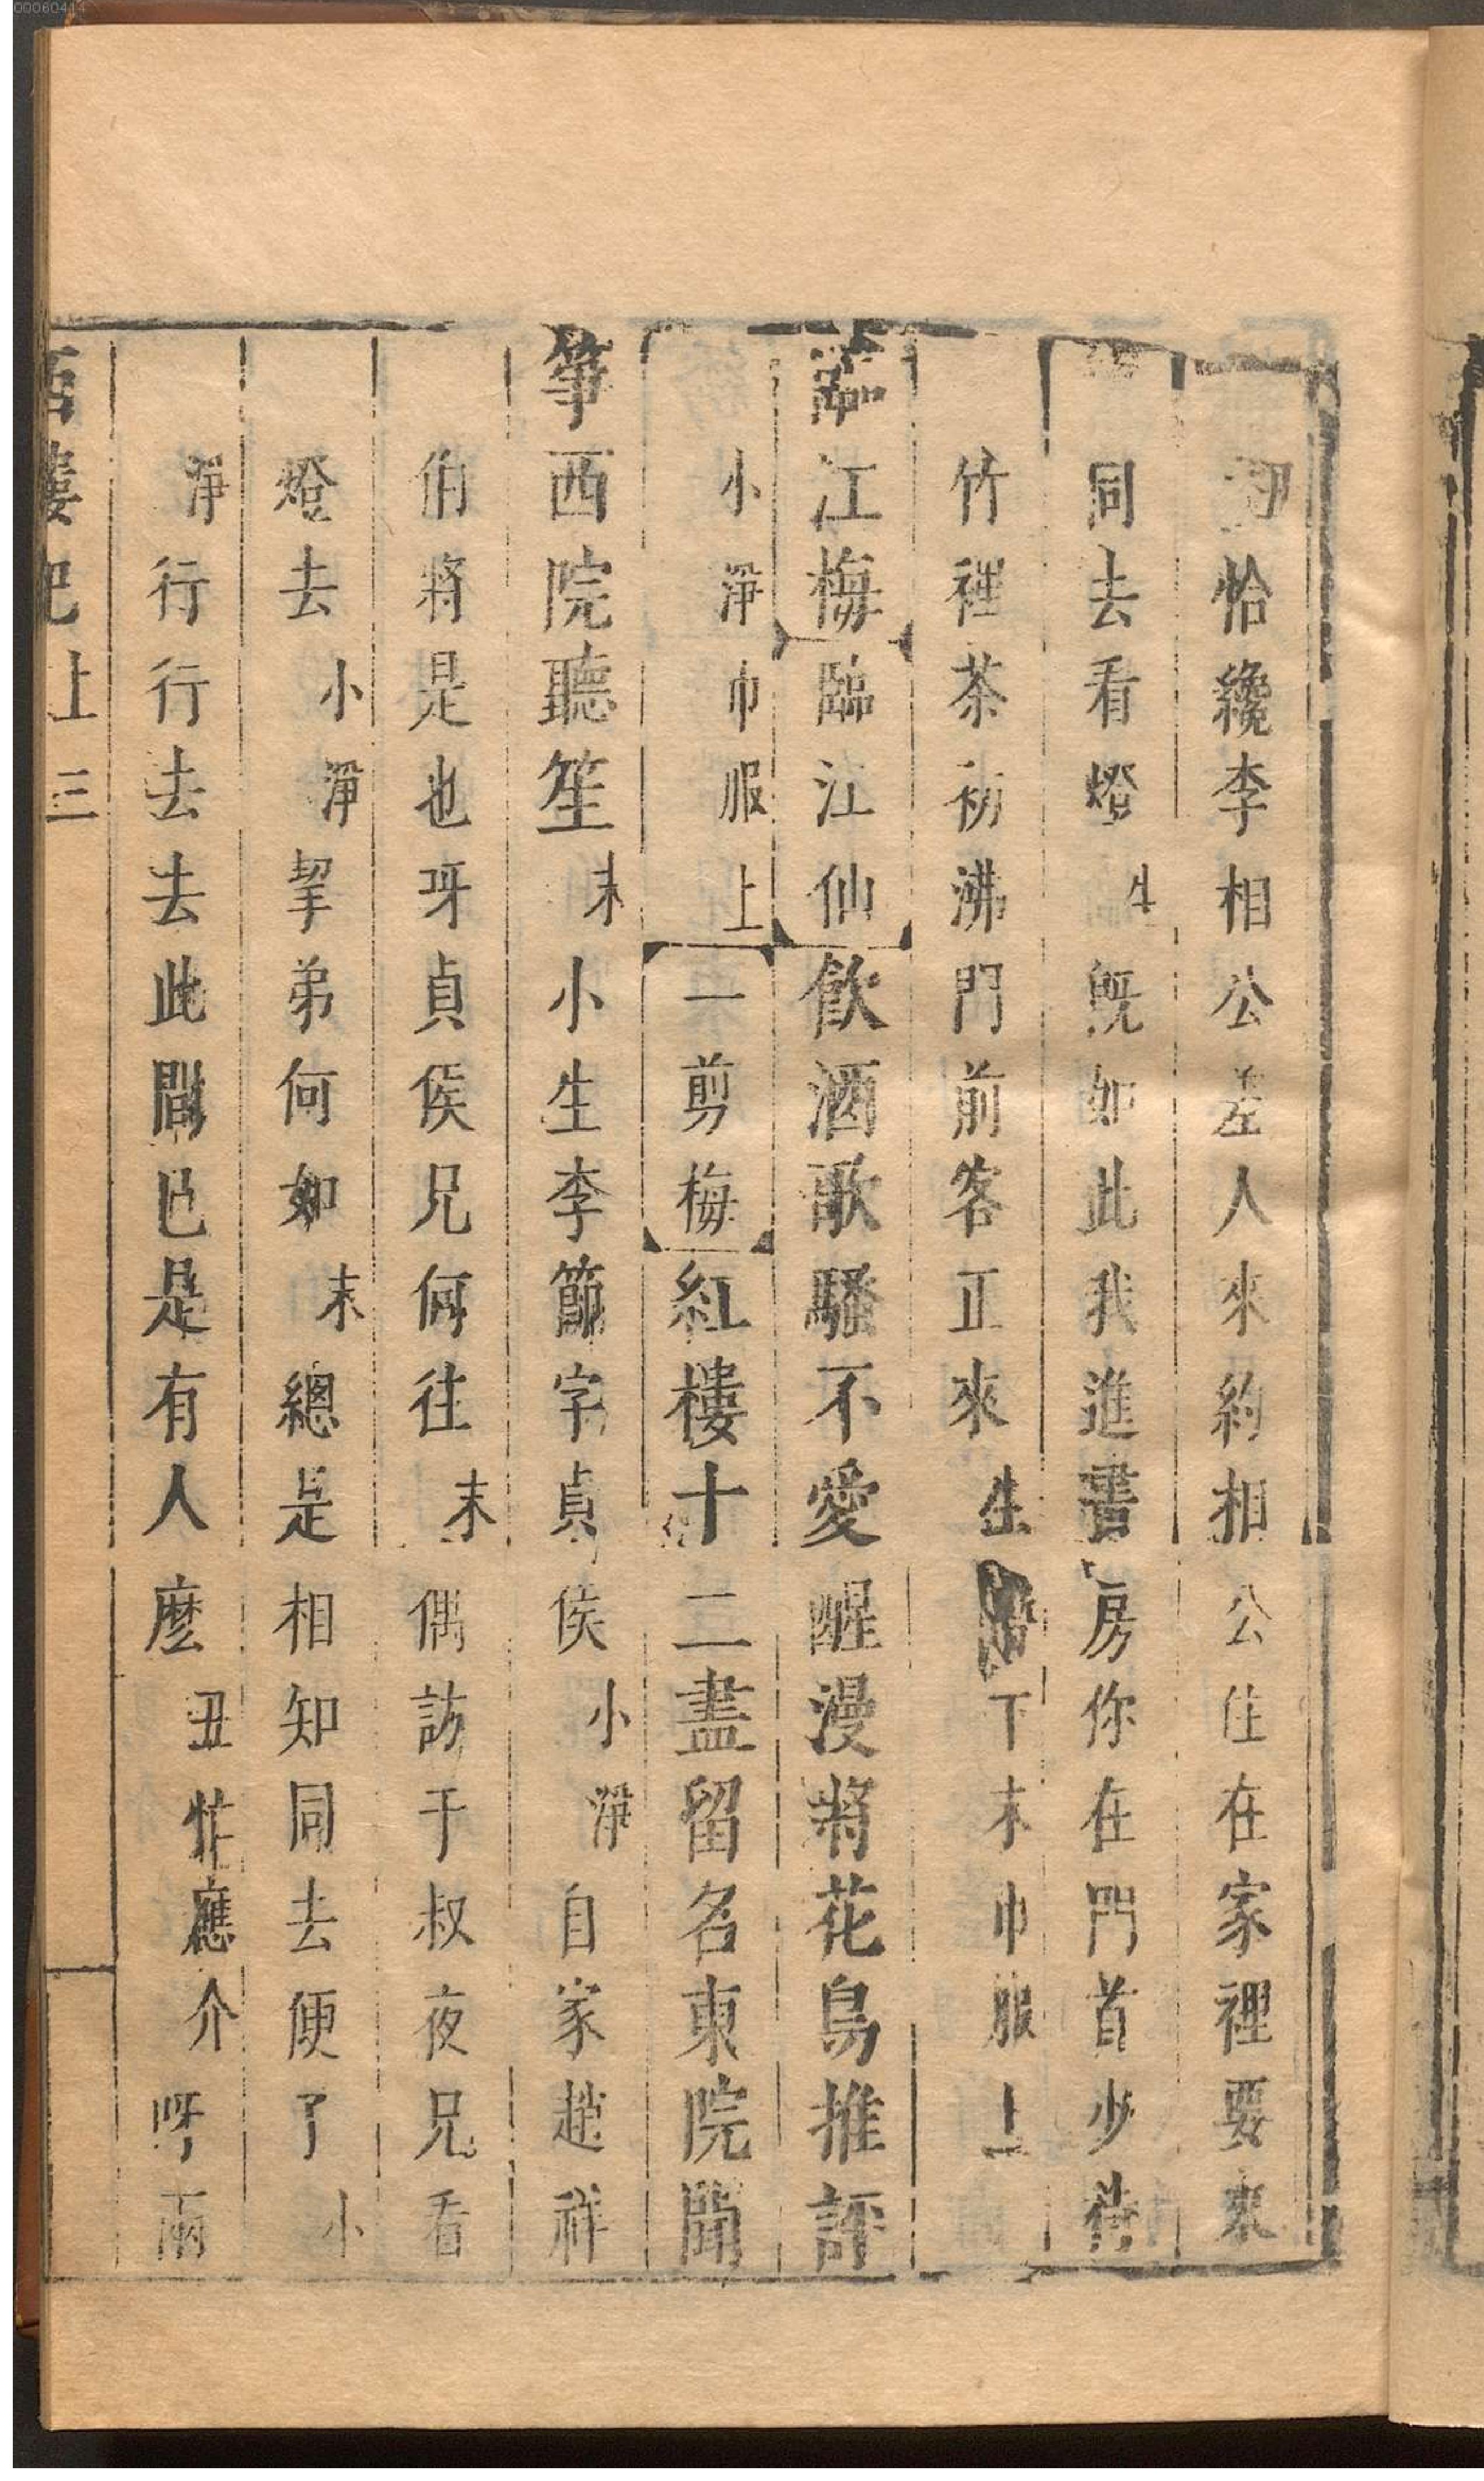 恰纔李相公差人來約相公住在家裡要來
同去看燈生既如此我進書房你在門首少待
竹裡茶初沸門前客正來生下末巾服上
臨江梅臨江仙飲酒歌騷不愛醒漫將花鳥推評
小淨巾服上一剪梅紅樓十二盡留名東院聞
箏西院聽笙末小生李節字貞侯小淨自家趙祥
伯將是也呀貞侯兄何往末偶訪于叔夜兄看
燈去小淨挈弟何如末總是相知同去便了小
淨行行去去此間已是有人麼丑忙應介呀兩
西樓記上三
00060414